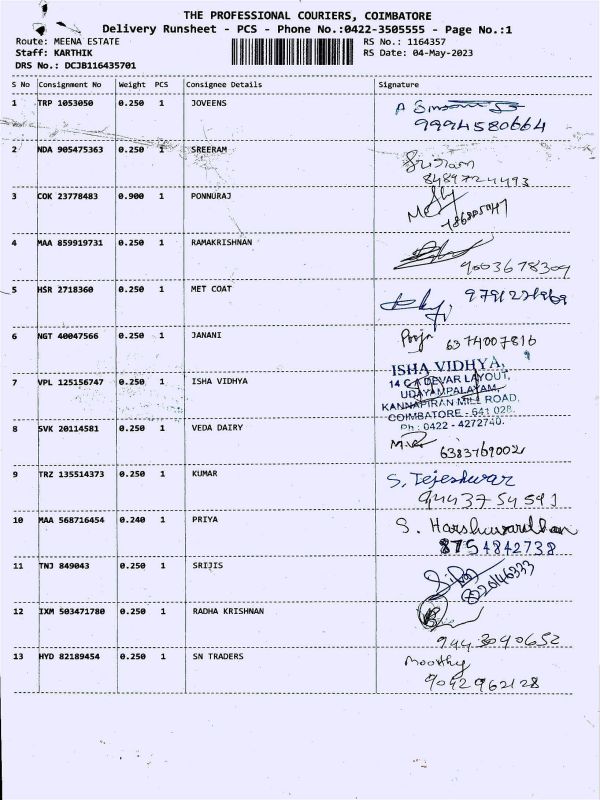 THE PROFESSIONAL COURIERS, COIMBATORE
Delivery Runsheet - PCS - Phone No.:0422-3505555 - Page No.:1
Route: MEENA ESTATE RS No.: 1164357
Staff: KARTHIK RS Date: 04-May-2023
DRS No.: DCJB116435701
S No Consignment No Weight PCS Consignee Details Signature
1 TRP 1053050 0.250 1 JOVEENS
9994580664
2 NDA 905475363 0.250 1 SREERAM Sriram
8489724493
3 COK 23778483 0.900 1 PONNURAJ
4 MAA 859919731 0.250 1 RAMAKRISHNAN
9003678309
5 HSR 2718360 0.250 1 MET COAT
6 NGT 40047566 0.250 1 JANANI Pooja 6374007816
ISHA VIDHYA,
7 VPL 125156747 0.250 1 ISHA VIDHYA 14 C A DEVAR LAYOUT,
UDAYAMPALAYAM,
KANNAPIRAN MILL ROAD,
COIMBATORE - 641 028.
Ph : 0422 - 4272740.
8 SVK 20114581 0.250 1 VEDA DAIRY
6383769002
9 TRZ 135514373 0.250 1 KUMAR S. Tejeshwar
9443754591
10 MAA 568716454 0.240 1 PRIYA S. Harshuvardhan
8754842738
11 TNJ 849043 0.250 1 SRIJIS
8220146333
12 IXM 503471780 0.250 1 RADHA KRISHNAN
9443090652
13 HYD 82189454 0.250 1 SN TRADERS Moorthy
9042962128